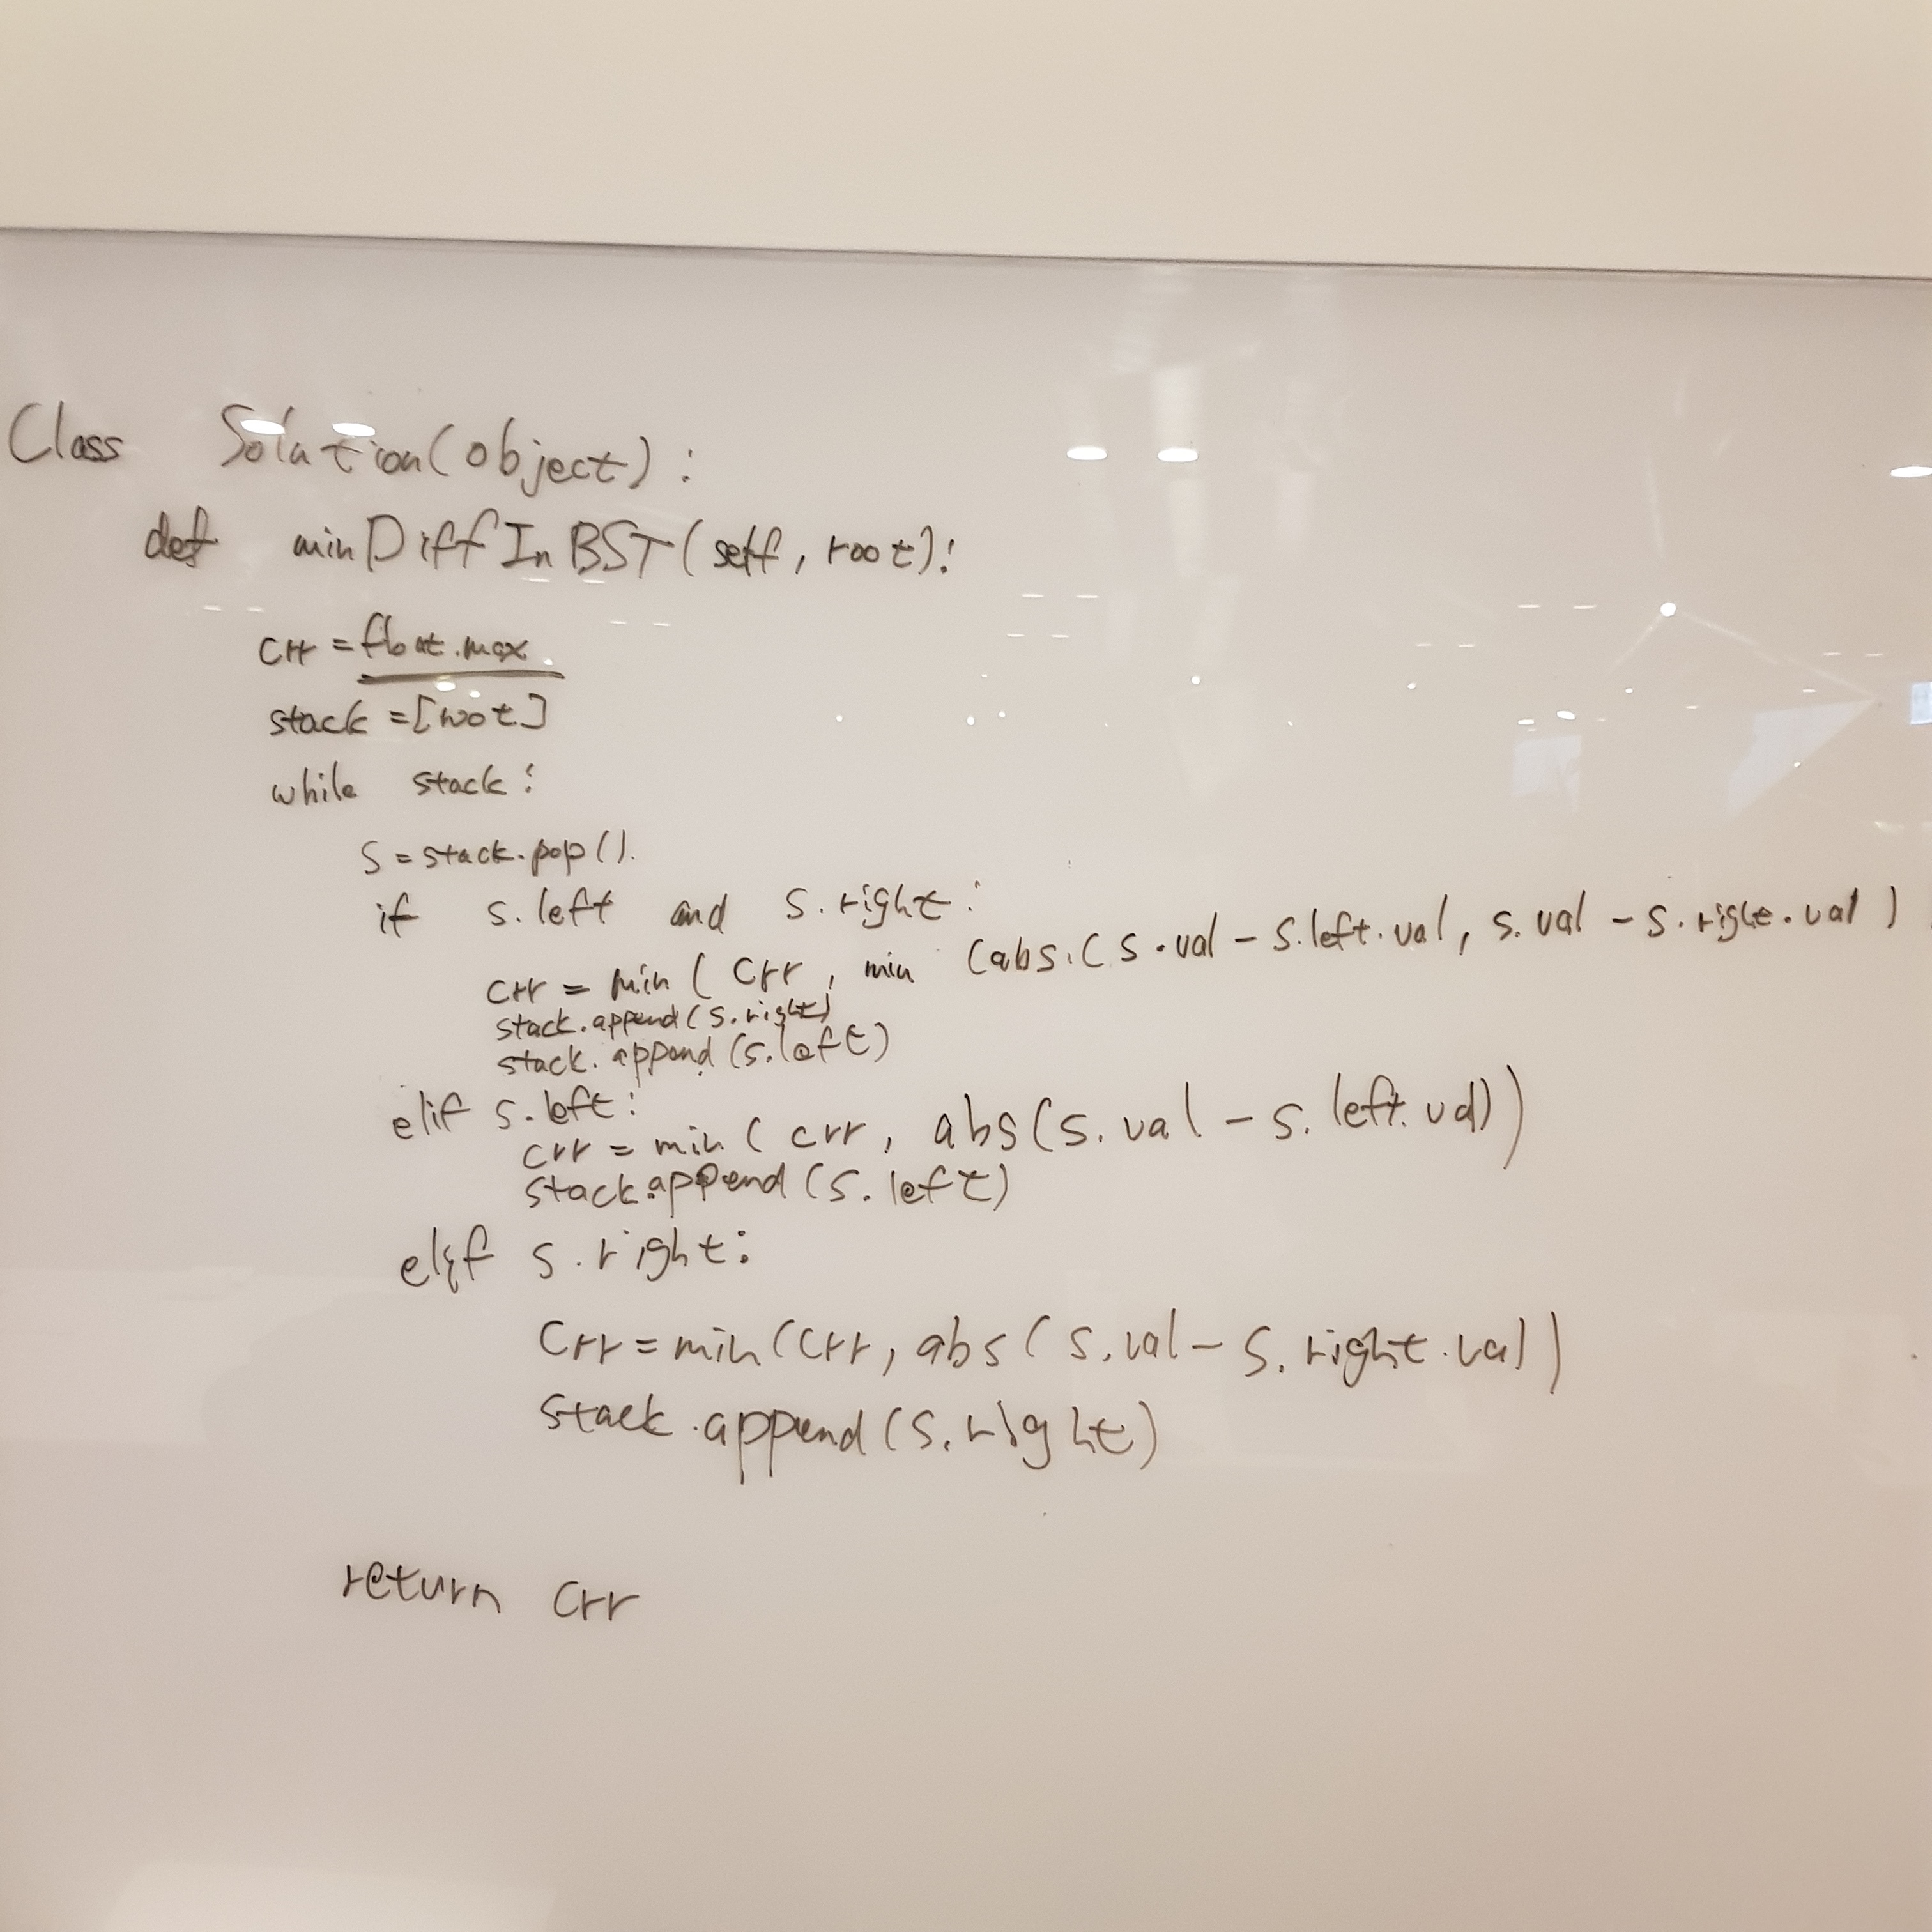 Class Solution(object):
def minDiffInBST(self, root):
crr = float.max
stack = [root]
while stack:
s = stack.pop().
if s.left and s.right:
crr = min ( crr , min (abs.( s.val - s.left.val, s.val - s.right.val )
stack.append(s.right)
stack.append(s.left)
elif s.left:
crr = min ( crr , abs(s.val - s.left.val))
stack.append(s.left)
elif s.right:
crr = min(crr, abs( s.val - s.right.val))
stack.append(s.right)
return crr